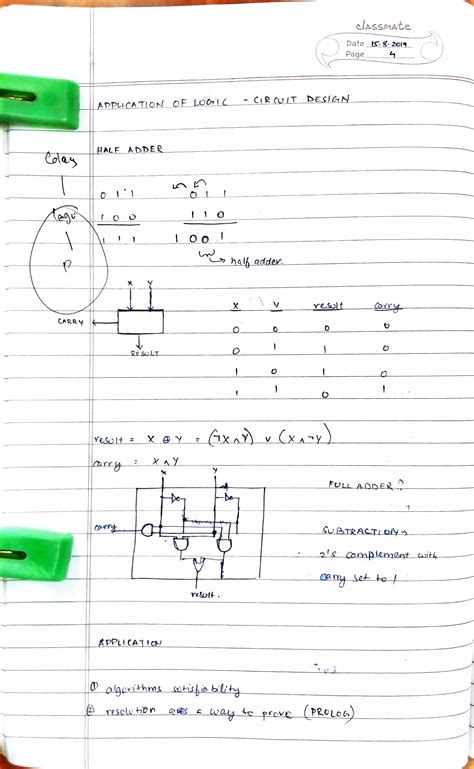 classmate
Date 15.8.2019
Page 4
APPLICATION OF LOGIC - CIRCUIT DESIGN
HALF ADDER
0 1 1
1 0 0
1 1 1
0 1 1
1 1 0
1 0 0 1
half adder.
logic
P
X Y
CARRY
RESULT
X Y result carry
0 0 0 0
0 1 1 0
1 0 1 0
1 1 0 1
result = X ⊕ Y = (¬X ∧ Y) ∨ (X ∧ ¬Y)
carry = X ∧ Y
X Y
carry
result.
FULL ADDER?
SUBTRACTION →
2's complement with
carry set to 1
APPLICATION
① algorithms satisfiability
② resolution as a way to prove (PROLOG)